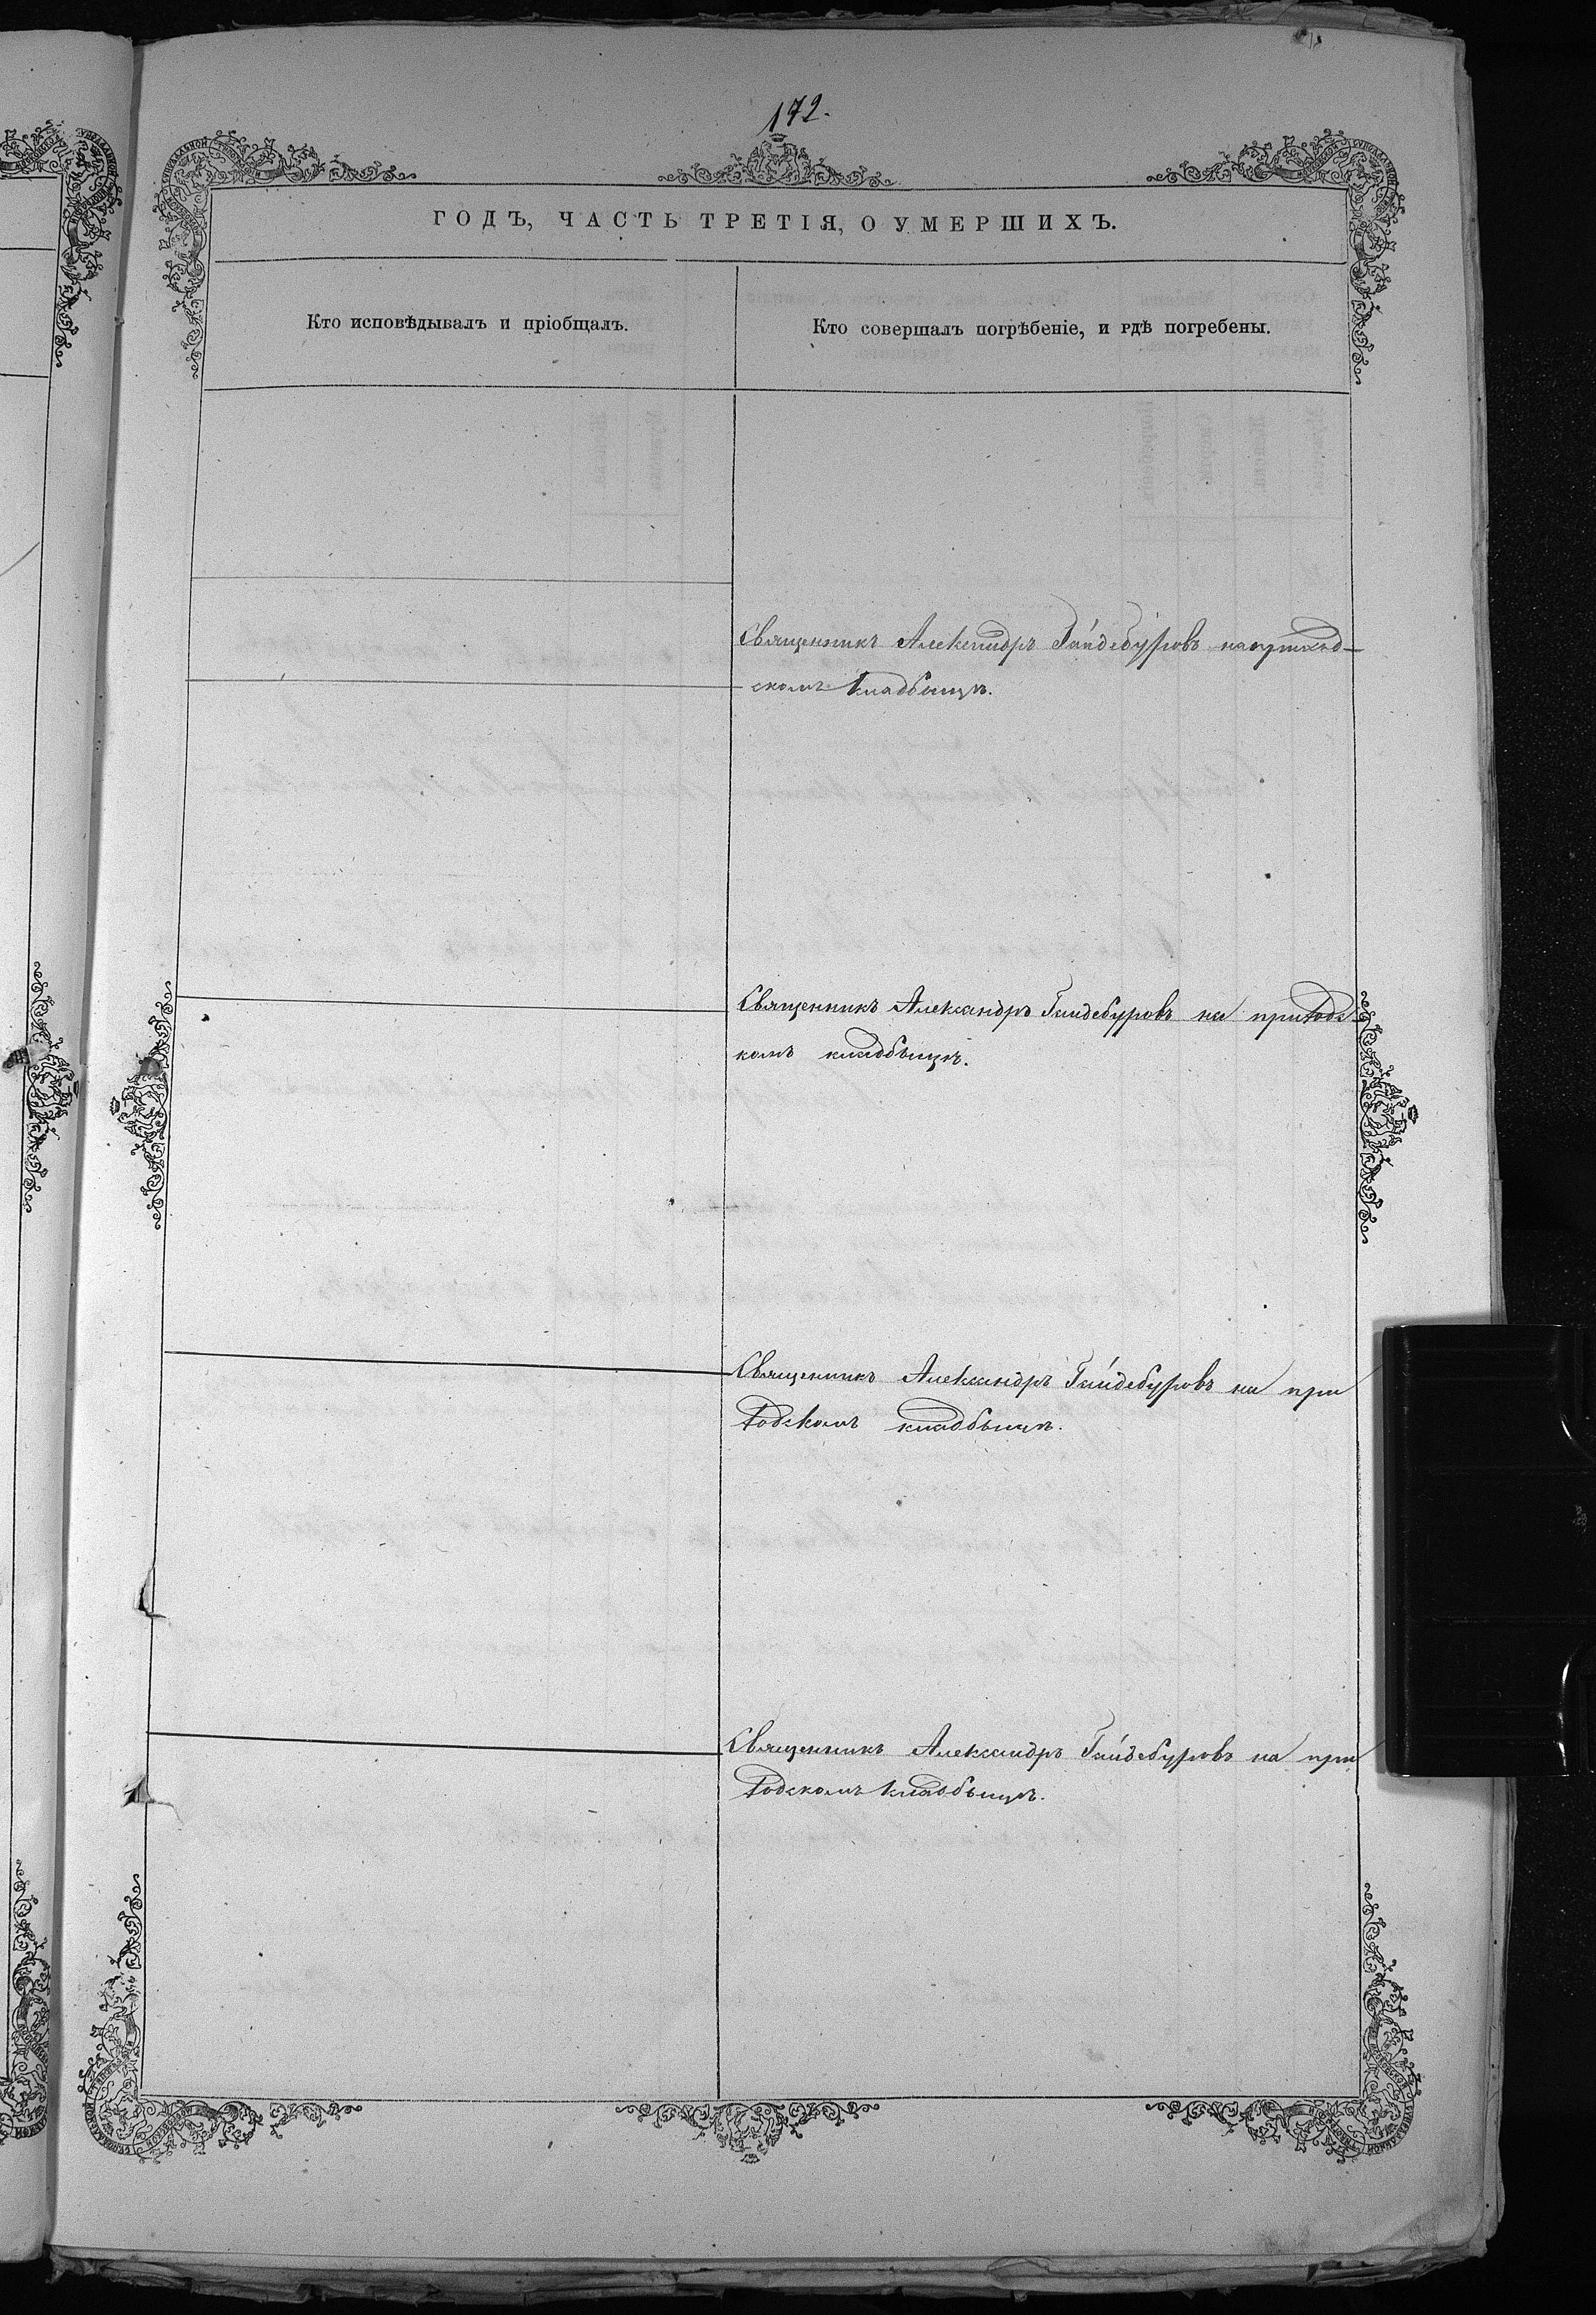 172.
ГОДЪ, ЧАСТЬ ТРЕТІЯ, О УМЕРШИХЪ.
Кто исповѣдывалъ и пріобщалъ.
Кто совершалъ погрѣбеніе, и гдѣ погребены.
Священникъ Александръ Гайдебуровъ на приход-
скомъ кладбищѣ.
Священникъ Александръ Гайдебуровъ на приходс
комъ кладбищѣ.
Священникъ Александръ Гайдебуровъ на при
ходскомъ кладбищѣ.
Священникъ Александръ Гайдебуровъ на при
ходскомъ кладбищѣ.